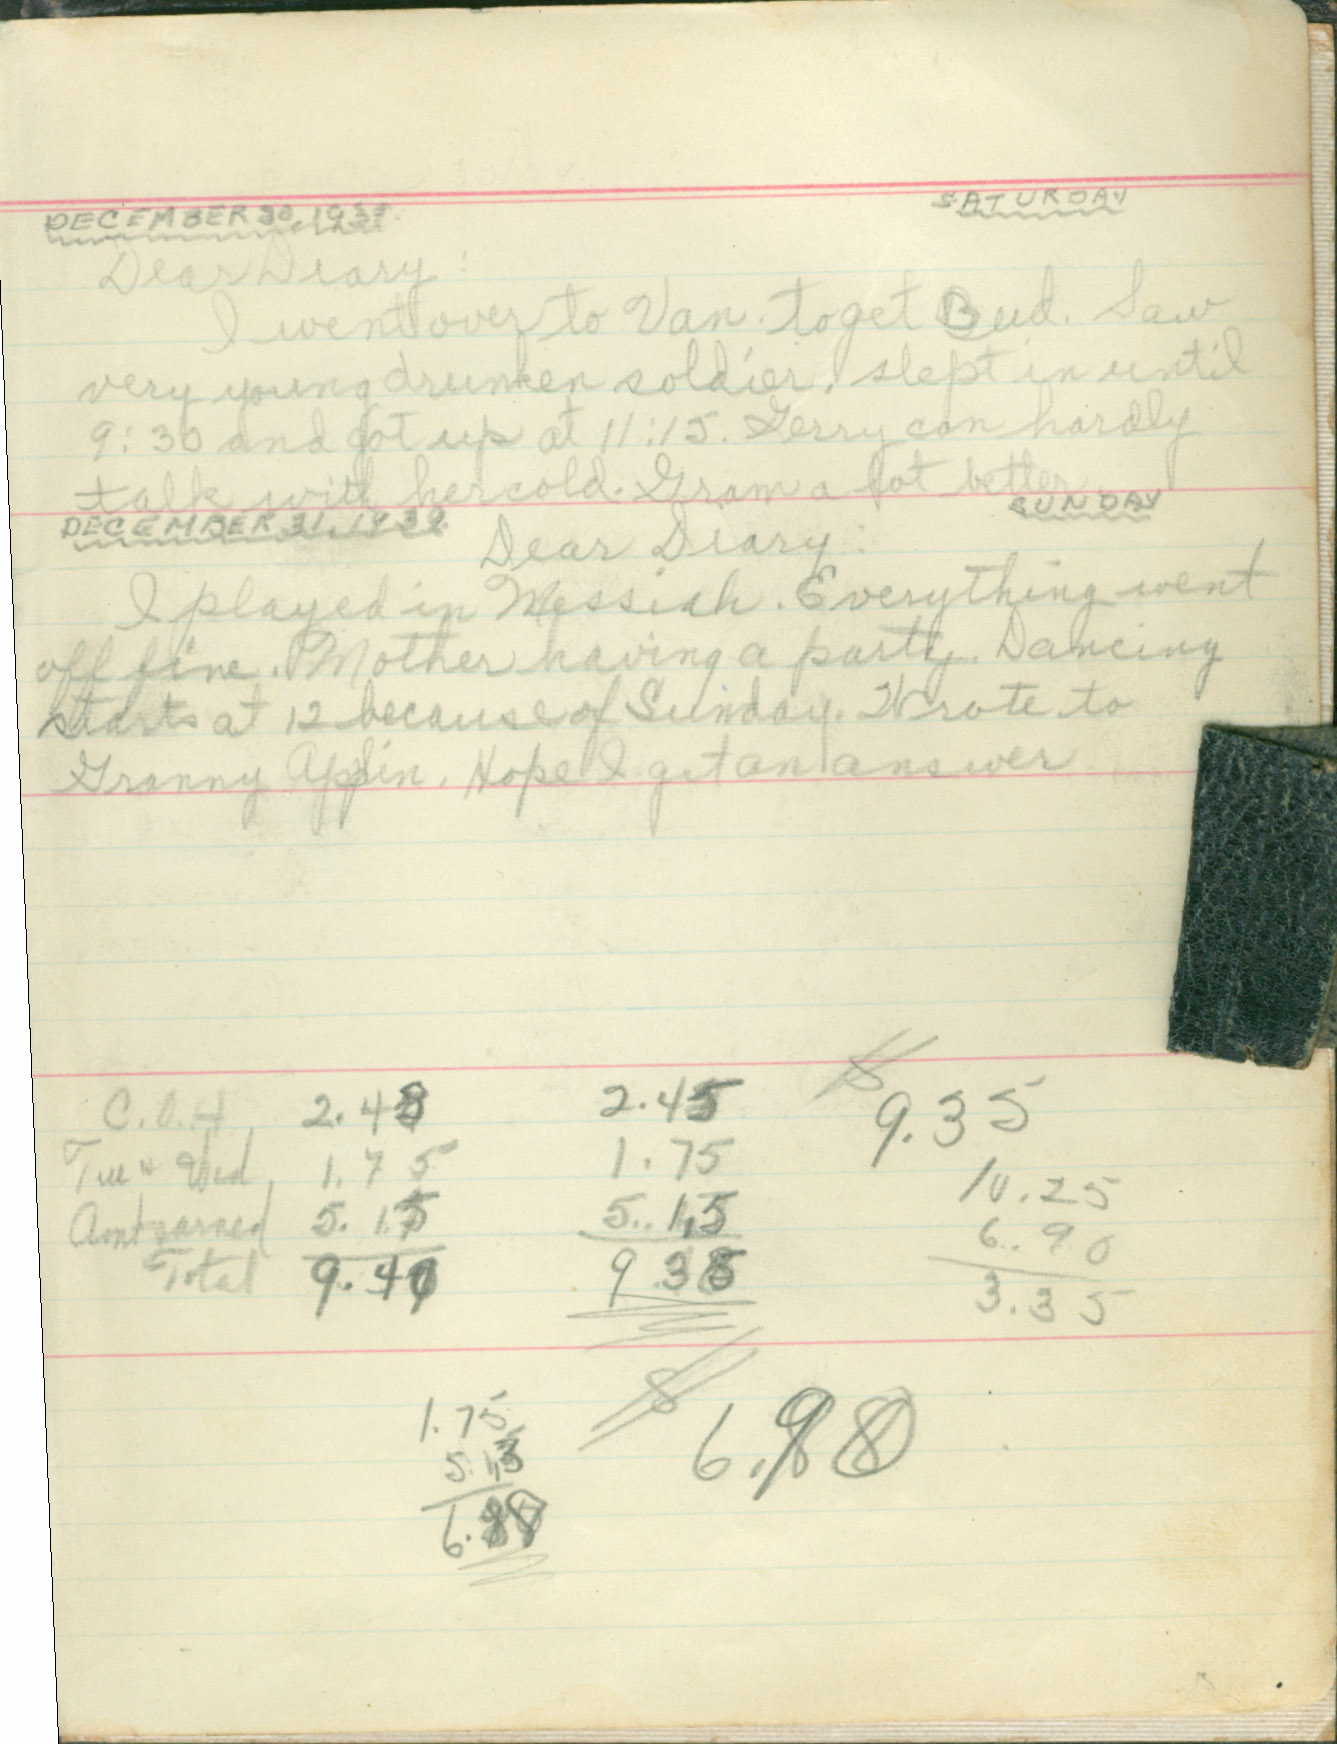 DECEMBER 30, 1939. SATURDAY
Dear Diary:
I went over to Van. to get Bud. Saw
very young drunken soldier. slept in until
9:30 and got up at 11:15. Gerry can hardly
talk with her cold. Gram a lot better
DECEMBER 31, 1939 SUNDAY
Dear Diary:
I played in Messiah. Everything went
off fine. Mother having a party. Dancing
starts at 12 because of Sunday. Wrote to
Granny Applin. Hope I get an answer
C.O.H 2.48 2.45 $ 9.35
Tue & Wed 1.75 1.75 10.25
Amt earned 5.15 5.15 6.90
Total 9.40 9.35 3.35
1.75 $ 6.88
5.13
6.88